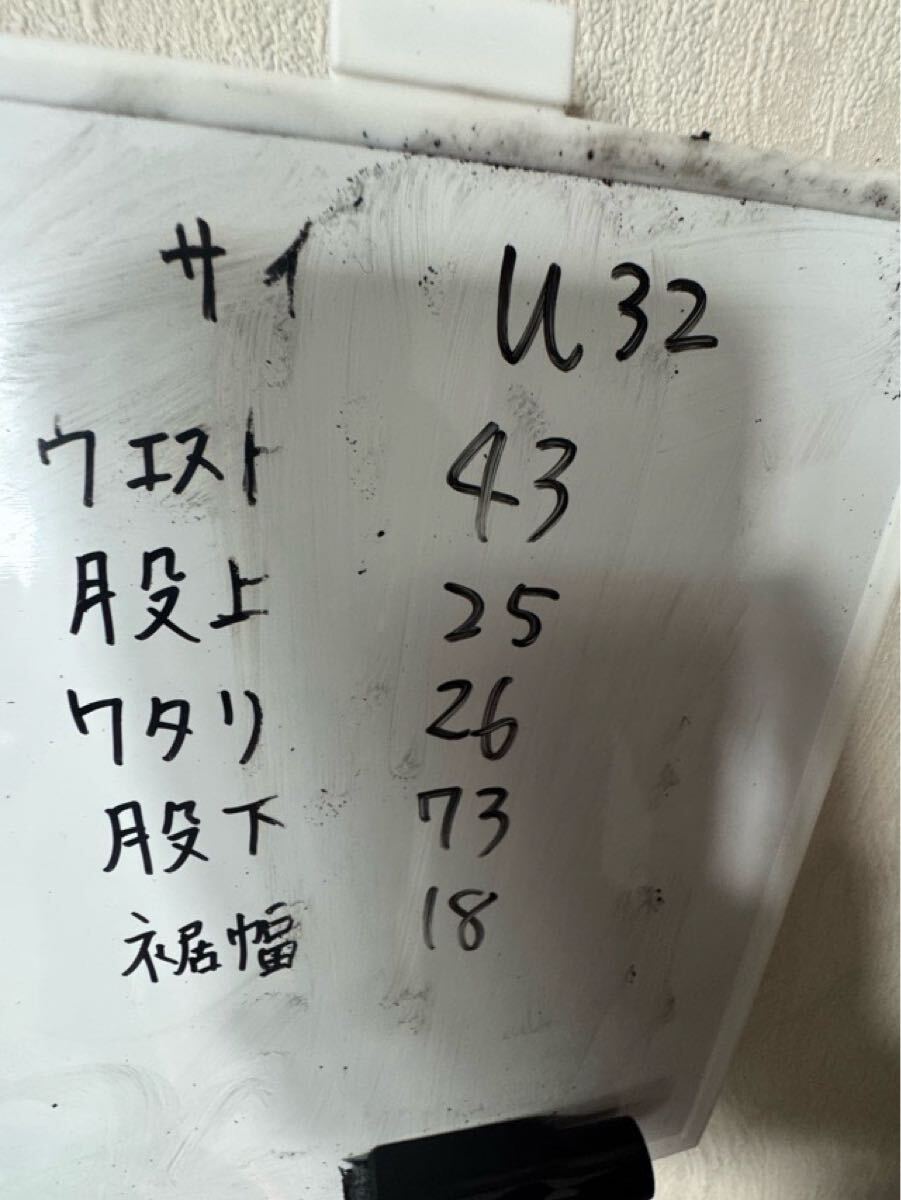 サイ W32
ウエスト 43
股上 25
ワタリ 26
股下 73
裾幅 18